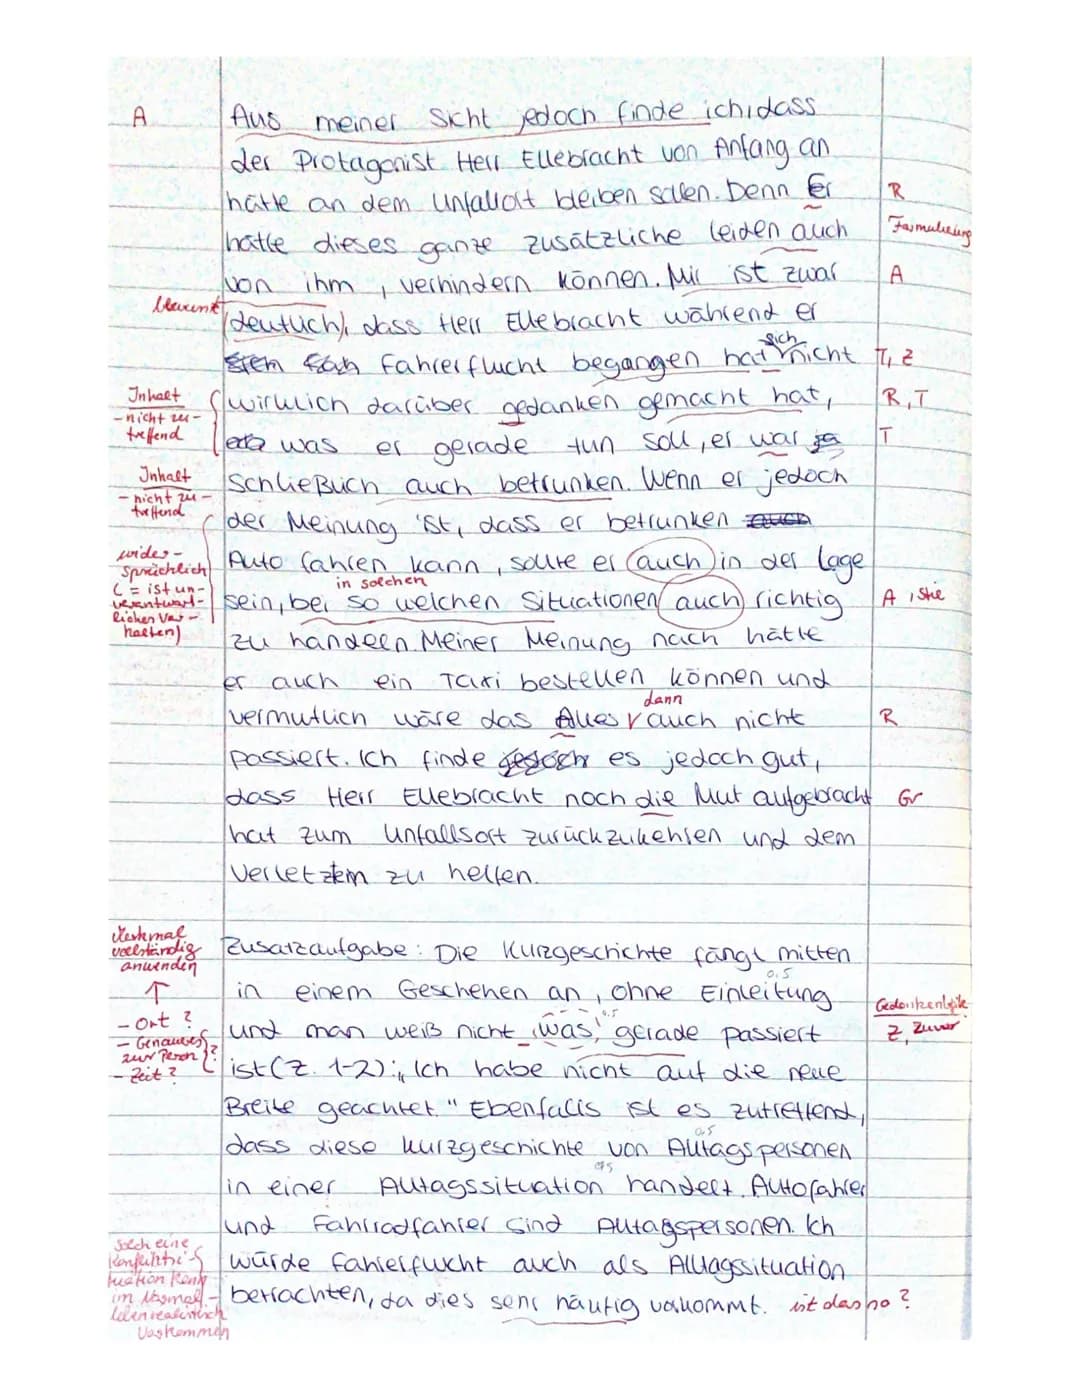 A Aus meiner Sicht jedoch finde ich, dass
der Protagonist Herr Ellebracht von Anfang an
hätte an dem Unfallort bleiben sollen. Denn Er R
hätte dieses ganze zusätzliche leiden auch Formulierung
von ihm, verhindern können. Mir ist zwar A
bewusst (deutlich), dass Herr Ellebracht während er
Fahrerflucht begangen hat sich nicht T, Z
Inhalt
- nicht zu-
treffend
wirklich darüber gedanken gemacht hat, R, T
was er gerade tun soll, er war ja T
Inhalt
- nicht zu-
treffend
Schließlich auch betrunken. Wenn er jedoch
der Meinung ist, dass er betrunken auch
wider-
sprüchlich
(= ist un-
verantwort-
liches Ver-
halten)
Auto fahren kann, sollte er auch in der Lage
in solchen
sein, bei so welchen Situationen auch richtig A, Stie
zu handeln. Meiner Meinung nach hätte
er auch ein Taxi bestellen können und
dann
vermutlich wäre das Alles auch nicht R
passiert. Ich finde jedoch es jedoch gut,
dass Herr Ellebracht noch die Mut aufgebracht Gr
hat zum Unfallsort zurückzukehren und dem
Verletztem zu helfen.
Merkmal
vollständig
anwenden
↑
- Ort?
- Genaues
zur Person
- Zeit?
?
Zusatzaufgabe: Die Kurzgeschichte fängt mitten
0.5
in einem Geschehen an, ohne Einleitung
Gedankenlücke
0.5
und man weiß nicht, was gerade passiert Z, Zuvor
ist (Z. 1-2): „Ich habe nicht auf die neue
Breite geachtet." Ebenfalls ist es zutreffend,
0.5
dass diese Kurzgeschichte von Alltagspersonen
0.5
in einer Alltagssituation handelt. Autofahrer
und Fahrradfahrer sind Alltagspersonen. Ich
Solch eine
Konfliktsi-
tuation kann
im normal-
leben realistisch
vorkommen
würde Fahrerflucht auch als Alltagssituation
betrachten, da dies sehr häufig vorkommt. ist das so?